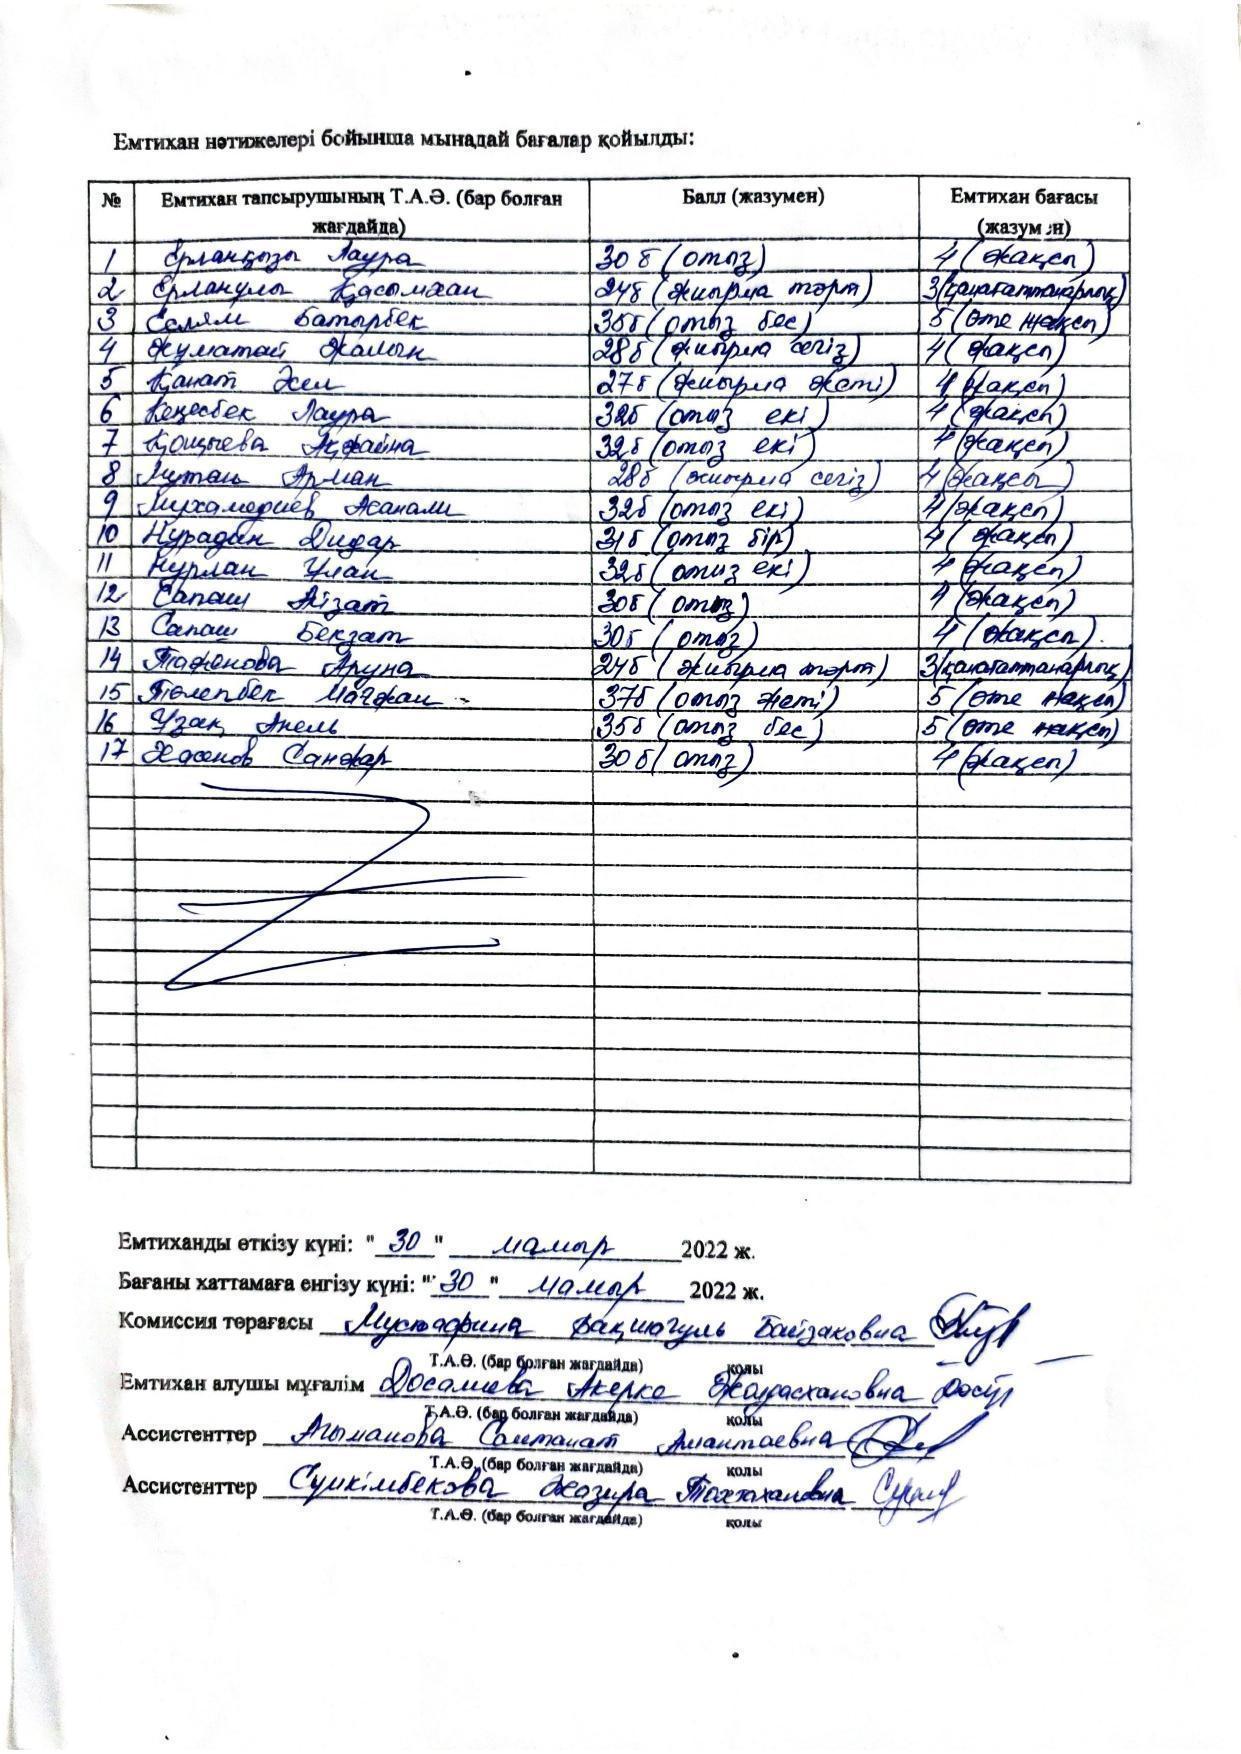 Емтихан нәтижелері бойынша мынадай бағалар қойылды:
№ Емтихан тапсырушының Т.А.Ә. (бар болған жағдайда) Балл (жазумен) Емтихан бағасы (жазумен)
1 Ерланқызы Лаура 30 б (отыз) 4 (жақсы)
2 Ерланұлы Қасымхан 24б (жиырма төрт) 3 (қанағаттанарлық)
3 Есләм Батырбек 35б (отыз бес) 5 (өте жақсы)
4 Жұматай Жалын 28б (жиырма сегіз) 4 (жақсы)
5 Қанат Әсел 27б (жиырма жеті) 4 (жақсы)
6 Кеңесбек Лаура 32б (отыз екі) 4 (жақсы)
7 Қощыева Ақжайна 32б (отыз екі) 4 (жақсы)
8 Мутан Арман 28б (жиырма сегіз) 4 (жақсы)
9 Мухамедиев Жанали 32б (отыз екі) 4 (жақсы)
10 Нурадин Дидар 31б (отыз бір) 4 (жақсы)
11 Нурлан Ұлан 32б (отыз екі) 4 (жақсы)
12 Сапаш Айзат 30б (отыз) 4 (жақсы)
13 Сапаш Бекзат 30б (отыз) 4 (жақсы).
14 Тажонова Аруна 24б (жиырма төрт) 3 (қанағаттанарлық)
15 Төлепбек Мағжан 37б (отыз жеті) 5 (өте жақсы)
16 Ұзақ Анель 35б (отыз бес) 5 (өте жақсы)
17 Хасенов Санжар 30 б (отыз) 4 (жақсы)
Емтиханды өткізу күні: "30" мамыр 2022 ж.
Бағаны хаттамаға енгізу күні: "30" мамыр 2022 ж.
Комиссия төрағасы Мустафина Бақшагуль Байзаковна
Т.А.Ә. (бар болған жағдайда) қолы
Емтихан алушы мұғалім Досалиева Акерке Жолдасхановна
Т.А.Ә. (бар болған жағдайда) қолы
Ассистенттер Агыманова Салтанат Амантаевна
Т.А.Ә. (бар болған жағдайда) қолы
Ассистенттер Сүйкімбекова Жазира Тохтахановна
Т.А.Ә. (бар болған жағдайда) қолы